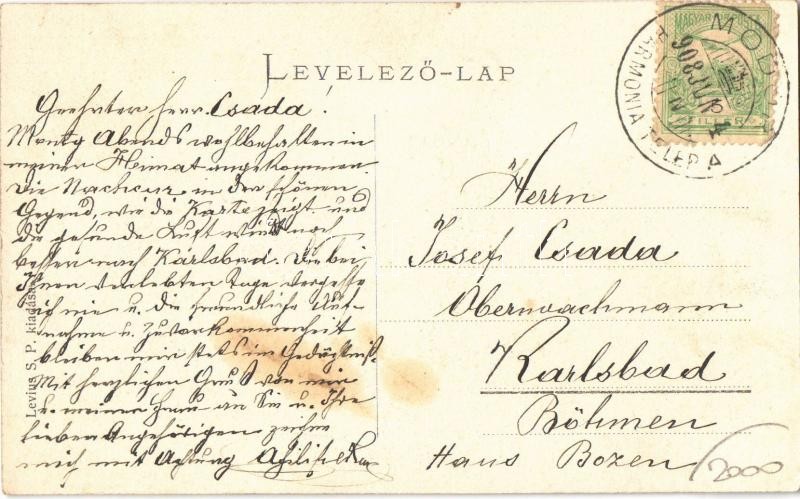 LEVELEZŐ-LAP
MAGYAR POSTA
FILLÉR
MODOR
HARMONIA TELEP
908
A
Geehrter Herr Csada!
Montg Abends wohlbehalten in
meiner Heimat angekommen
die Nachcur in der schönen
Gegend, wie die Karte zeigt und
die gesunde Luft wirkt noch
besser nach Karlsbad. Die bei
Ihnen verlebten Tage vergesse
ich nie u. die freundliche Auf-
nahme u. Zuvorkommenheit
bleiben mir stets im Gedägtniß.
Mit herzlichen Gruß von mir
u. meiner Frau an Sie u. Ihre
lieben Angehörigen zeichne
mich mit Achtung
Herrn
Josef Csada
Oberwachmann
Karlsbad
Böhmen
Haus Bozen
2000
Levius S. P. kiadása